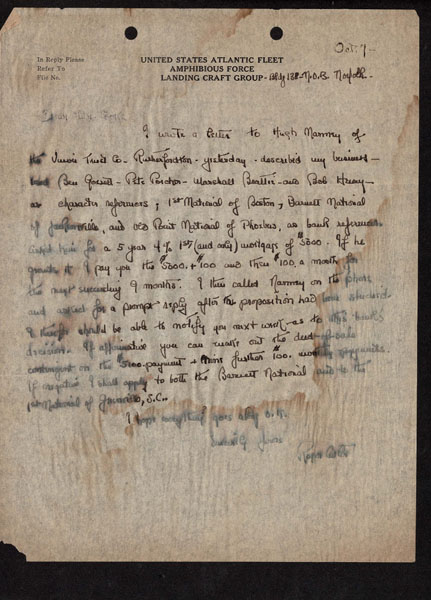 In Reply Please
Refer To
File No.
UNITED STATES ATLANTIC FLEET
AMPHIBIOUS FORCE
LANDING CRAFT GROUP - Bldg 138 - N.O.B. Norfolk -
Oct. 7 -
I wrote a letter to Hugh of
the Union Trust Co - Rutherfordton - yesterday - described my business -
Ben - Pete - Marshall - and Bob -
as character references; 1st National of Boston, Barnett National
of Jacksonville, and Old Point National of Phoebus, as bank references
for a 5 year 4% 1st (and only) mortgage of $5000. If he
grants it I pay you the $5000. + $100 and then $100. a month for
the next succeeding 9 months. I then called on the phone
and asked for a prompt reply after the proposition had been studied.
I should be able to notify you next week as to the bank's
decision. If affirmative you can make out the deed of sale
contingent on the $5000 payment + nine further $100. monthly payments.
If negative I shall apply to both the Barnett National and to the
1st National of, S.C..
I hope everything goes O.K.
yours